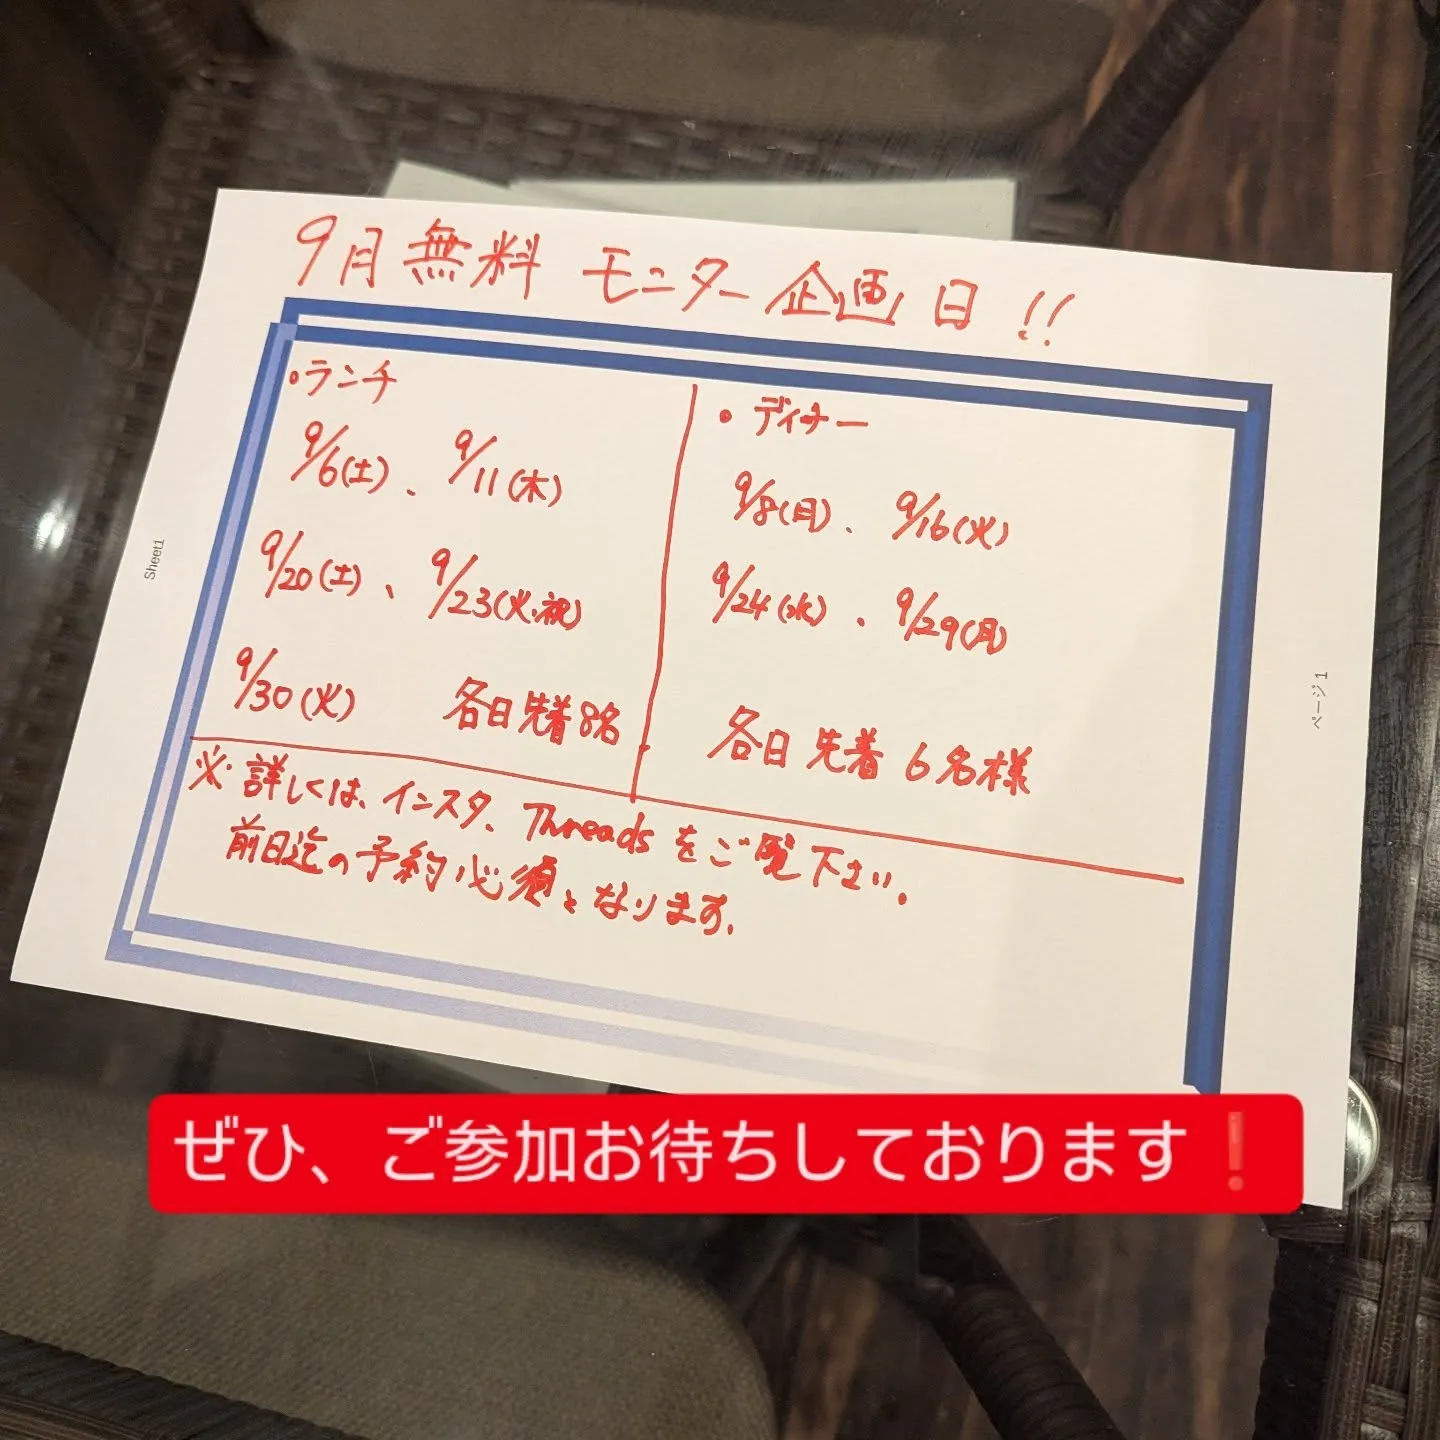 9月無料 モニター企画日!!
・ランチ
9/6(土)、9/11(木)
9/20(土)、9/23(火・祝)
9/30(火) 各日先着8名
・ディナー
9/8(月)、9/16(火)
9/24(水)、9/29(月)
各日 先着 6名様
※詳しくは、インスタ、Threadsをご覧下さい。
前日迄の予約必須となります。
Sheet1
ページ 1
ぜひ、ご参加お待ちしております❗